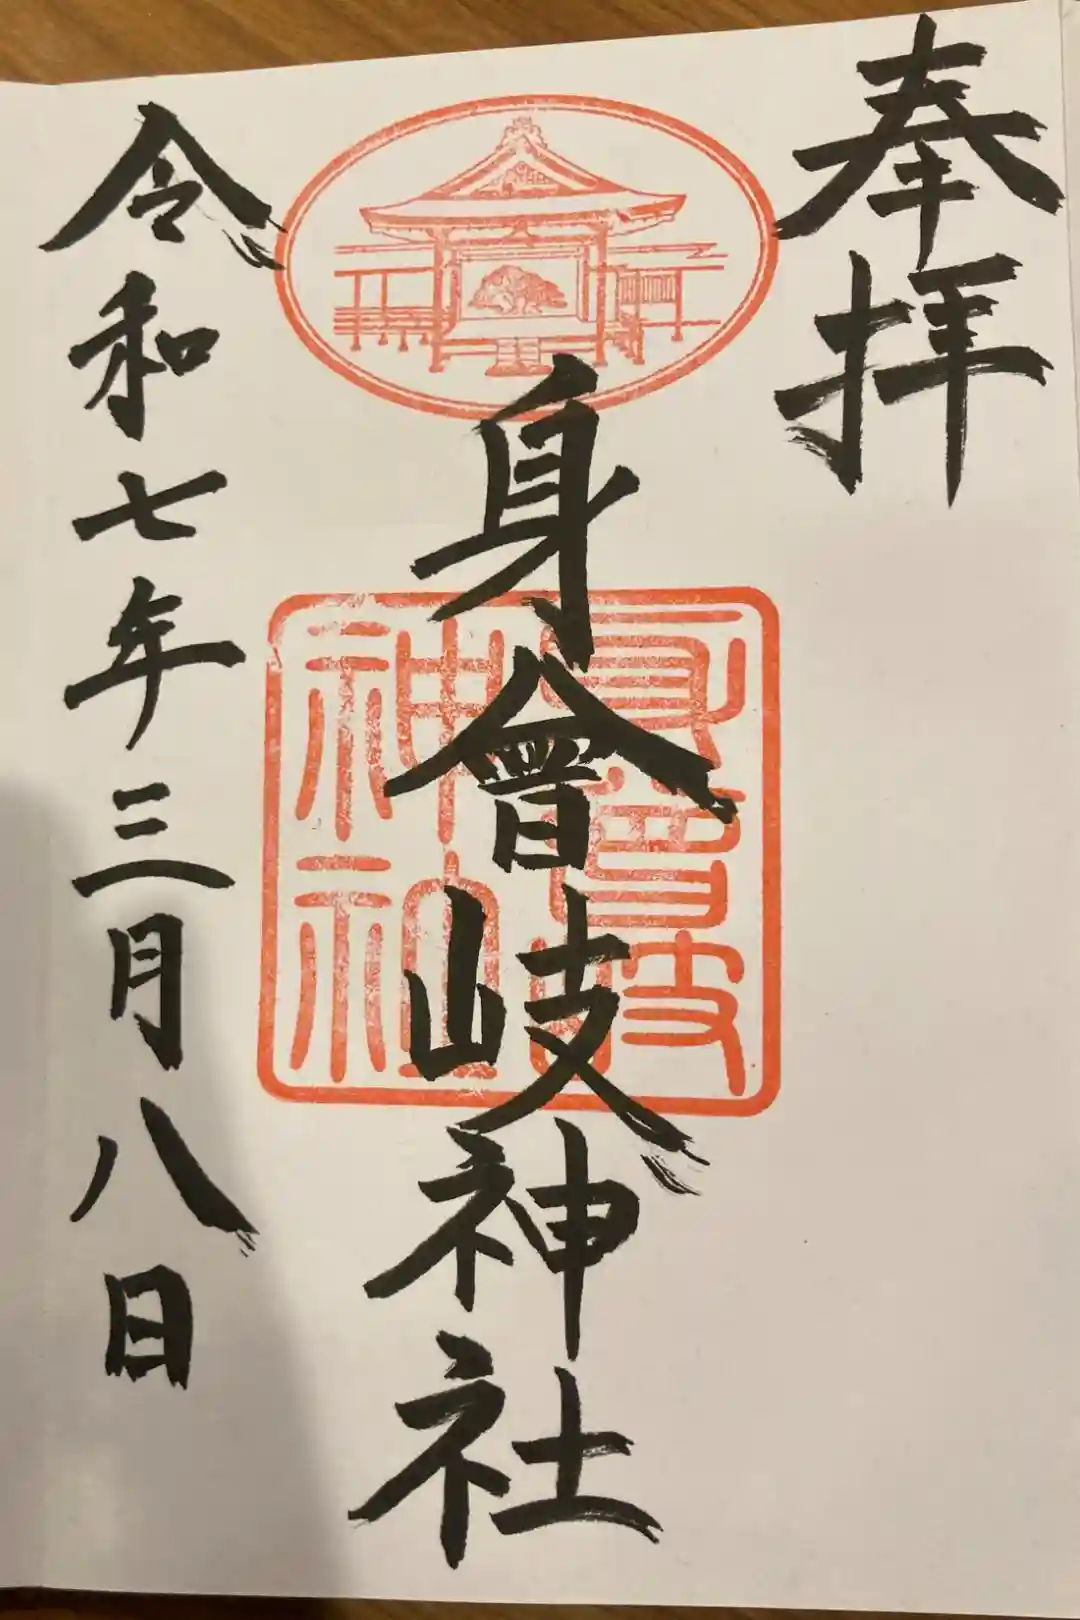 奉拝
身曾岐神社
身曾岐神社
令和七年三月八日